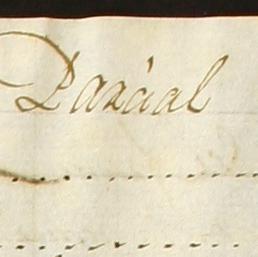 Pazáal